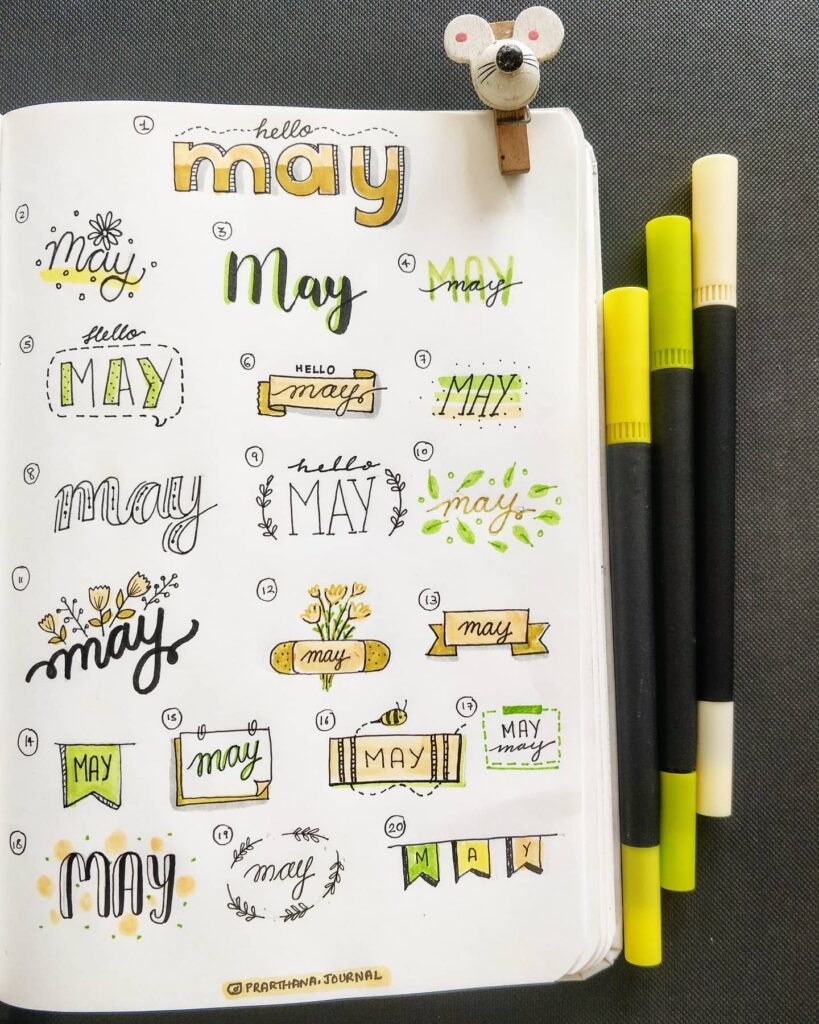 1
hello
may
2
may
3
May
4
MAY
may
5
Hello
MAY
6
HELLO
may
7
MAY
8
may
9
hello
MAY
10
may
11
may
12
may
13
may
14
MAY
15
may
16
MAY
17
MAY
may
18
MAY
19
may
20
M A Y
PRARTHANA.JOURNAL